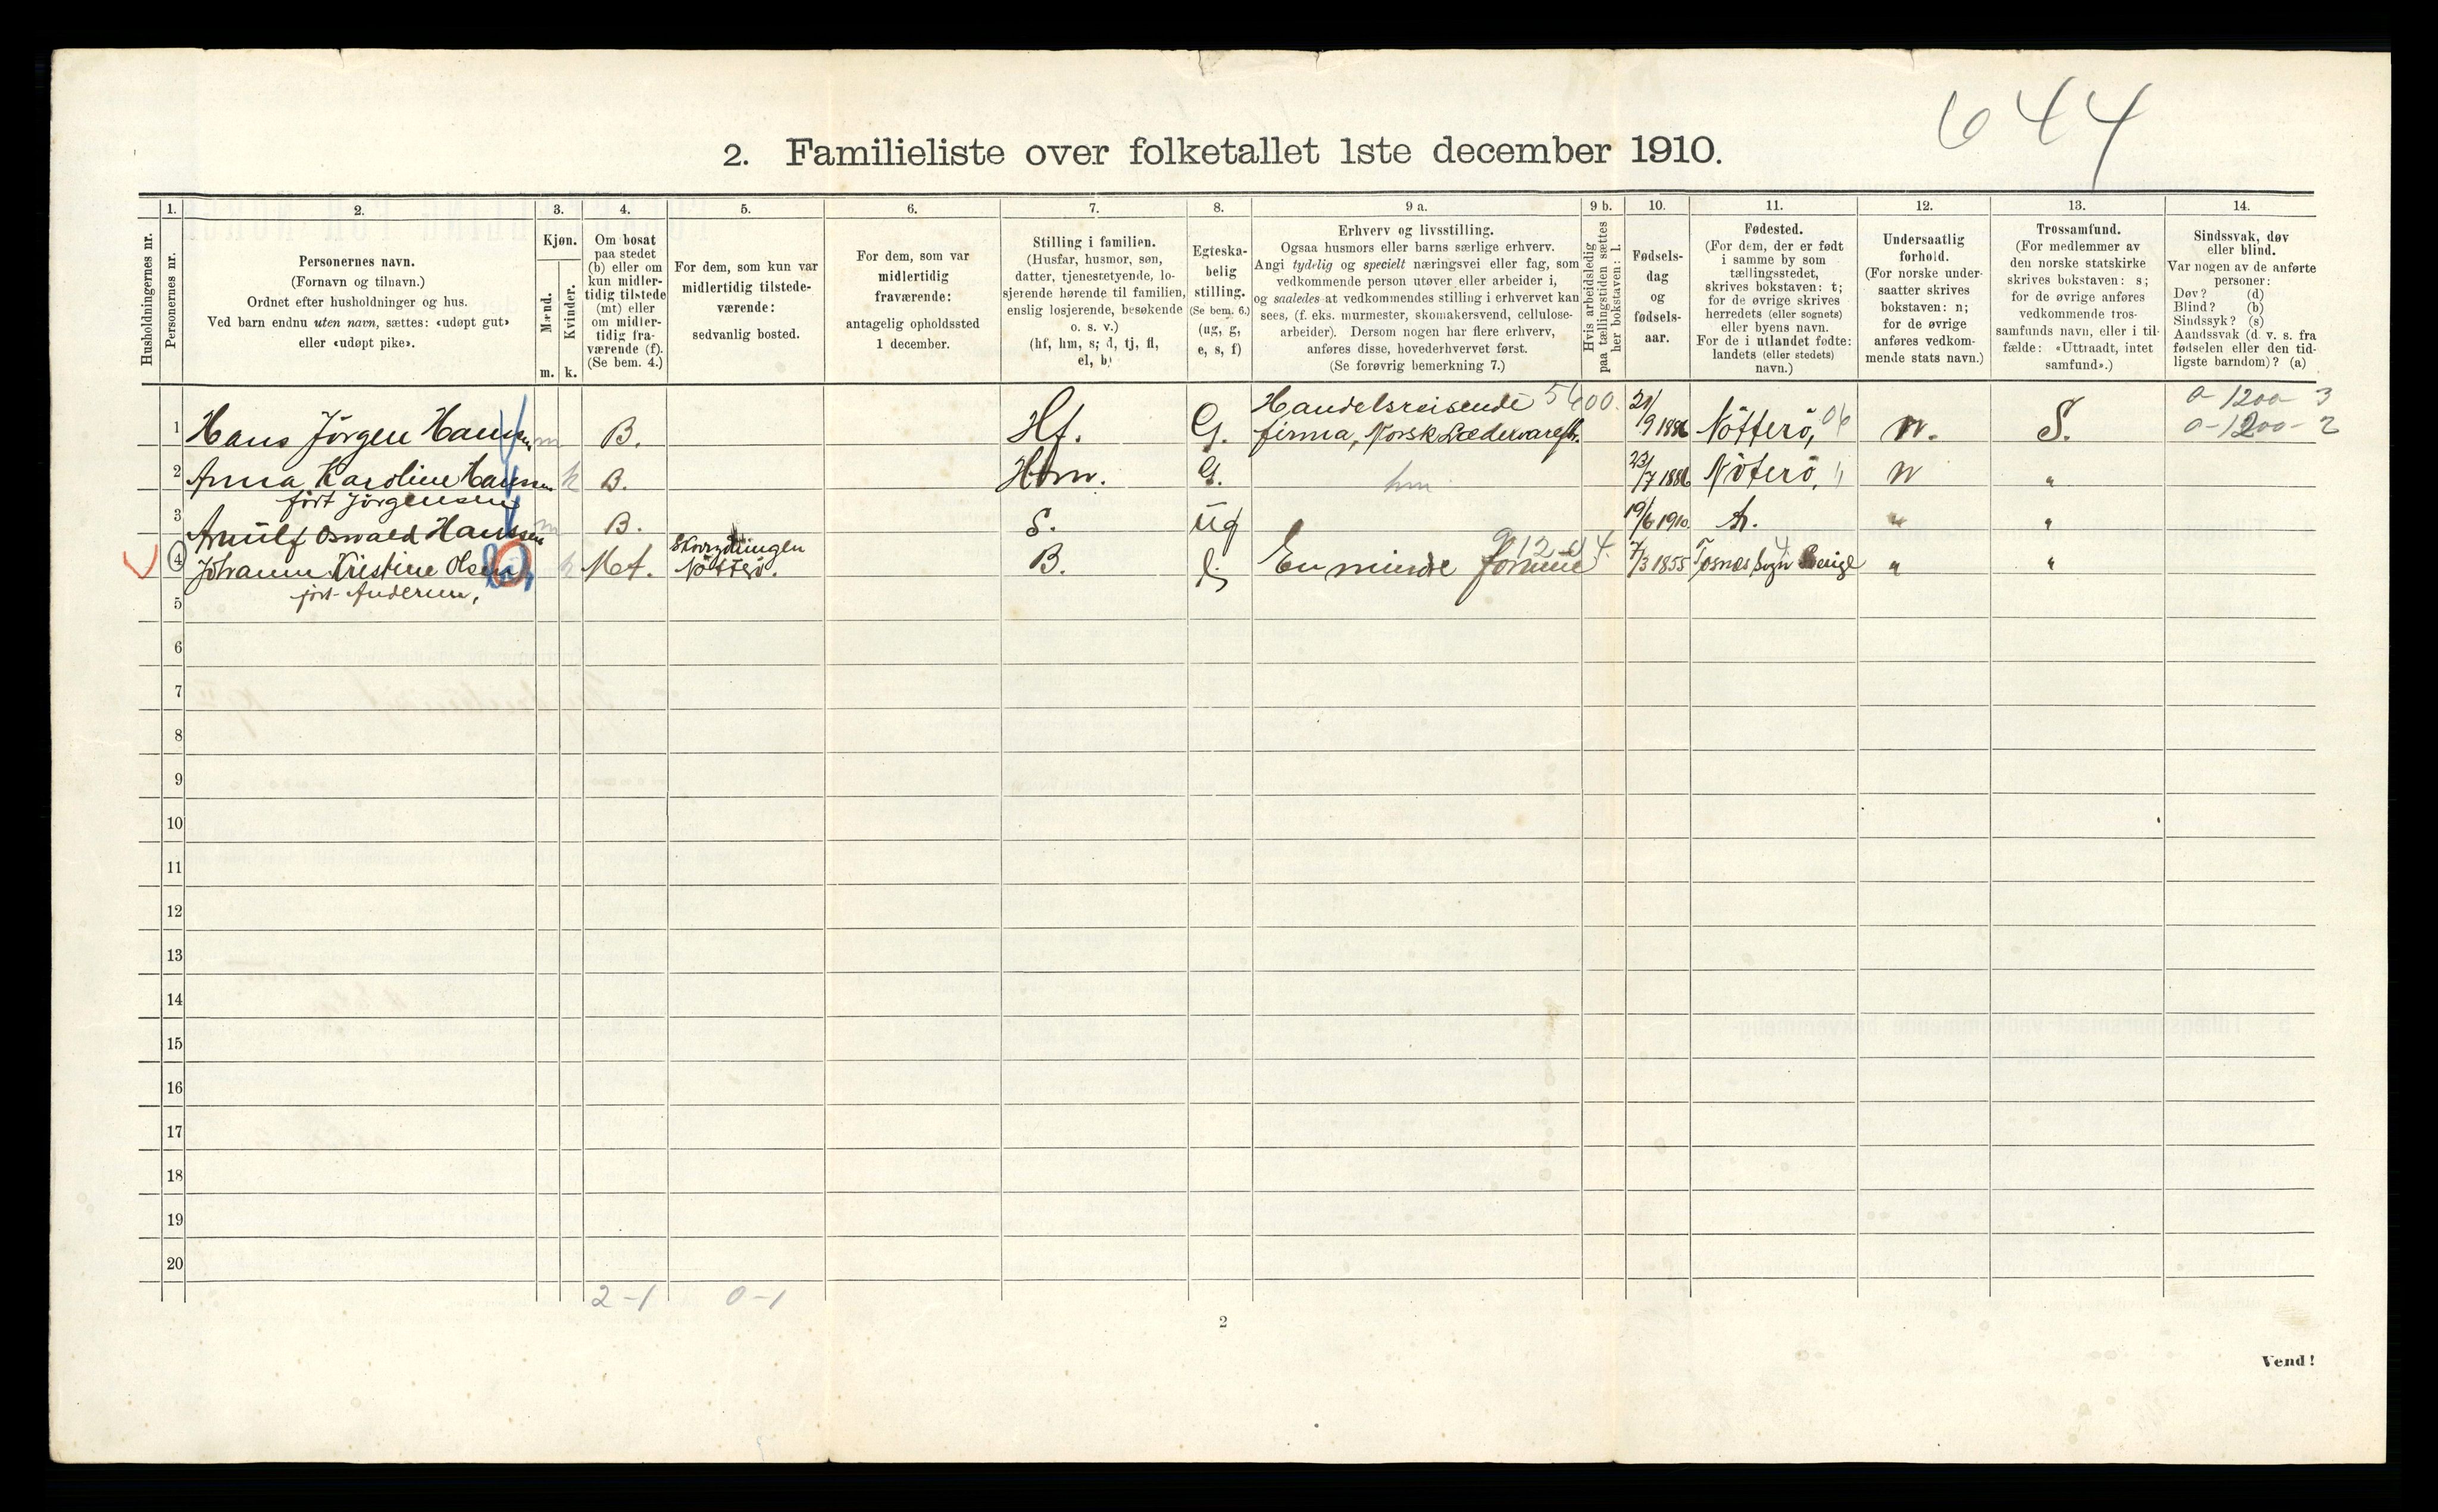 644
2. Familieliste over folketallet 1ste december 1910.
Husholdningernes nr.
1. Personernes nr.
2. Personernes navn.
(Fornavn og tilnavn.)
Ordnet efter husholdninger og hus.
Ved barn endnu uten navn, sættes: «udøpt gut»
eller «udøpt pike».
3. Kjøn.
Mænd. m.
Kvinder. k.
4. Om bosat
paa stedet
(b) eller om
kun midler-
tidig tilstede
(mt) eller
om midler-
tidig fra-
værende (f).
(Se bem. 4.)
5. For dem, som kun var
midlertidig tilstede-
værende:
sedvanlig bosted.
6. For dem, som var
midlertidig
fraværende:
antagelig opholdssted
1 december.
7. Stilling i familien.
(Husfar, husmor, søn,
datter, tjenestetyende, lo-
sjerende hørende til familien,
enslig losjerende, besøkende
o. s. v.)
(hf, hm, s, d, tj, fl,
el, b)
8. Egteska-
belig
stilling.
(Se bem. 6.)
(ug, g,
e, s, f)
9 a. Erhverv og livsstilling.
Ogsaa husmors eller barns særlige erhverv.
Angi tydelig og specielt næringsvei eller fag, som
vedkommende person utøver eller arbeider i,
og saaledes at vedkommendes stilling i erhvervet kan
sees, (f. eks. murmester, skomakersvend, cellulose-
arbeider). Dersom nogen har flere erhverv,
anføres disse, hovederhvervet først.
(Se forøvrig bemerkning 7.)
9 b. Hvis arbeidsledig
paa tællingstiden sættes
her bokstaven: l.
10. Fødsels-
dag
og
fødsels-
aar.
11. Fødested.
(For dem, der er født
i samme by som
tællingsstedet,
skrives bokstaven: t;
for de øvrige skrives
herredets (eller sognets)
eller byens navn.
For de i utlandet fødte:
landets (eller stedets)
navn.)
12. Undersaatlig
forhold.
(For norske under-
saatter skrives
bokstaven: n;
for de øvrige
anføres vedkom-
mende stats navn.)
13. Trossamfund.
(For medlemmer av
den norske statskirke
skrives bokstaven: s;
for de øvrige anføres
vedkommende tros-
samfunds navn, eller i til-
fælde: «Uttraadt, intet
samfund».)
14. Sindssvak, døv
eller blind.
Var nogen av de anførte
personer:
Døv? (d)
Blind? (b)
Sindssyk? (s)
Aandssvak (d. v. s. fra
fødselen eller den tid-
ligste barndom)? (a)
1 Hans Jörgen Hansen m B. Hf. G. Handelsreisende 5600.
firma, Norsk 21/9 1886 Nötterö, 06 n. S. 0-1200-3
0-1200-2
2 Anna Karoline Hansen k B. Hm. G. hm 23/7 1886 Nöterö, " n "
fört Jörgensen
3 Arnülf Oswald Hanssen m B. S. üg 19/6 1910 " "
4 Johanne Kristine Olsen k Mt. Nötterö. B. En mindre 912 7/3 1855 Sogn " "
fört Andersen,
5
6
7
8
9
10
11
12
13
14
15
16
17
18
19
20
2-1 0-1
2
Vend!